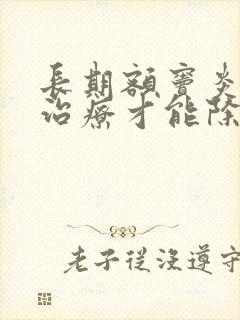 長期額竇炎
治療才能除
老子從沒遵守